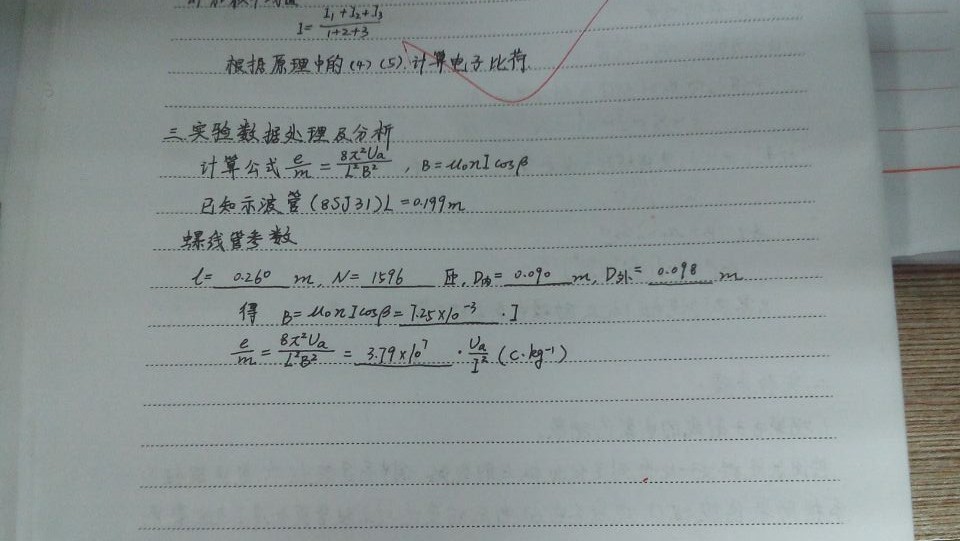 I = (I₁+I₂+I₃)/(1+2+3)
根据原理中的(4)(5).计算电子比荷
三.实验数据处理及分析
计算公式 e/m = 8π²Ua/L²B² , B=μ₀nIcosβ
已知示波管(8SJ31)L=0.199m
螺线管参数
l= 0.260 m, N= 1596 匝, D内= 0.090 m, D外= 0.098 m
得 B=μ₀nIcosβ= 7.25×10⁻³ ·I
e/m = 8π²Ua/L²B² = 3.79×10⁷ · Ua/I² (C·kg⁻¹)